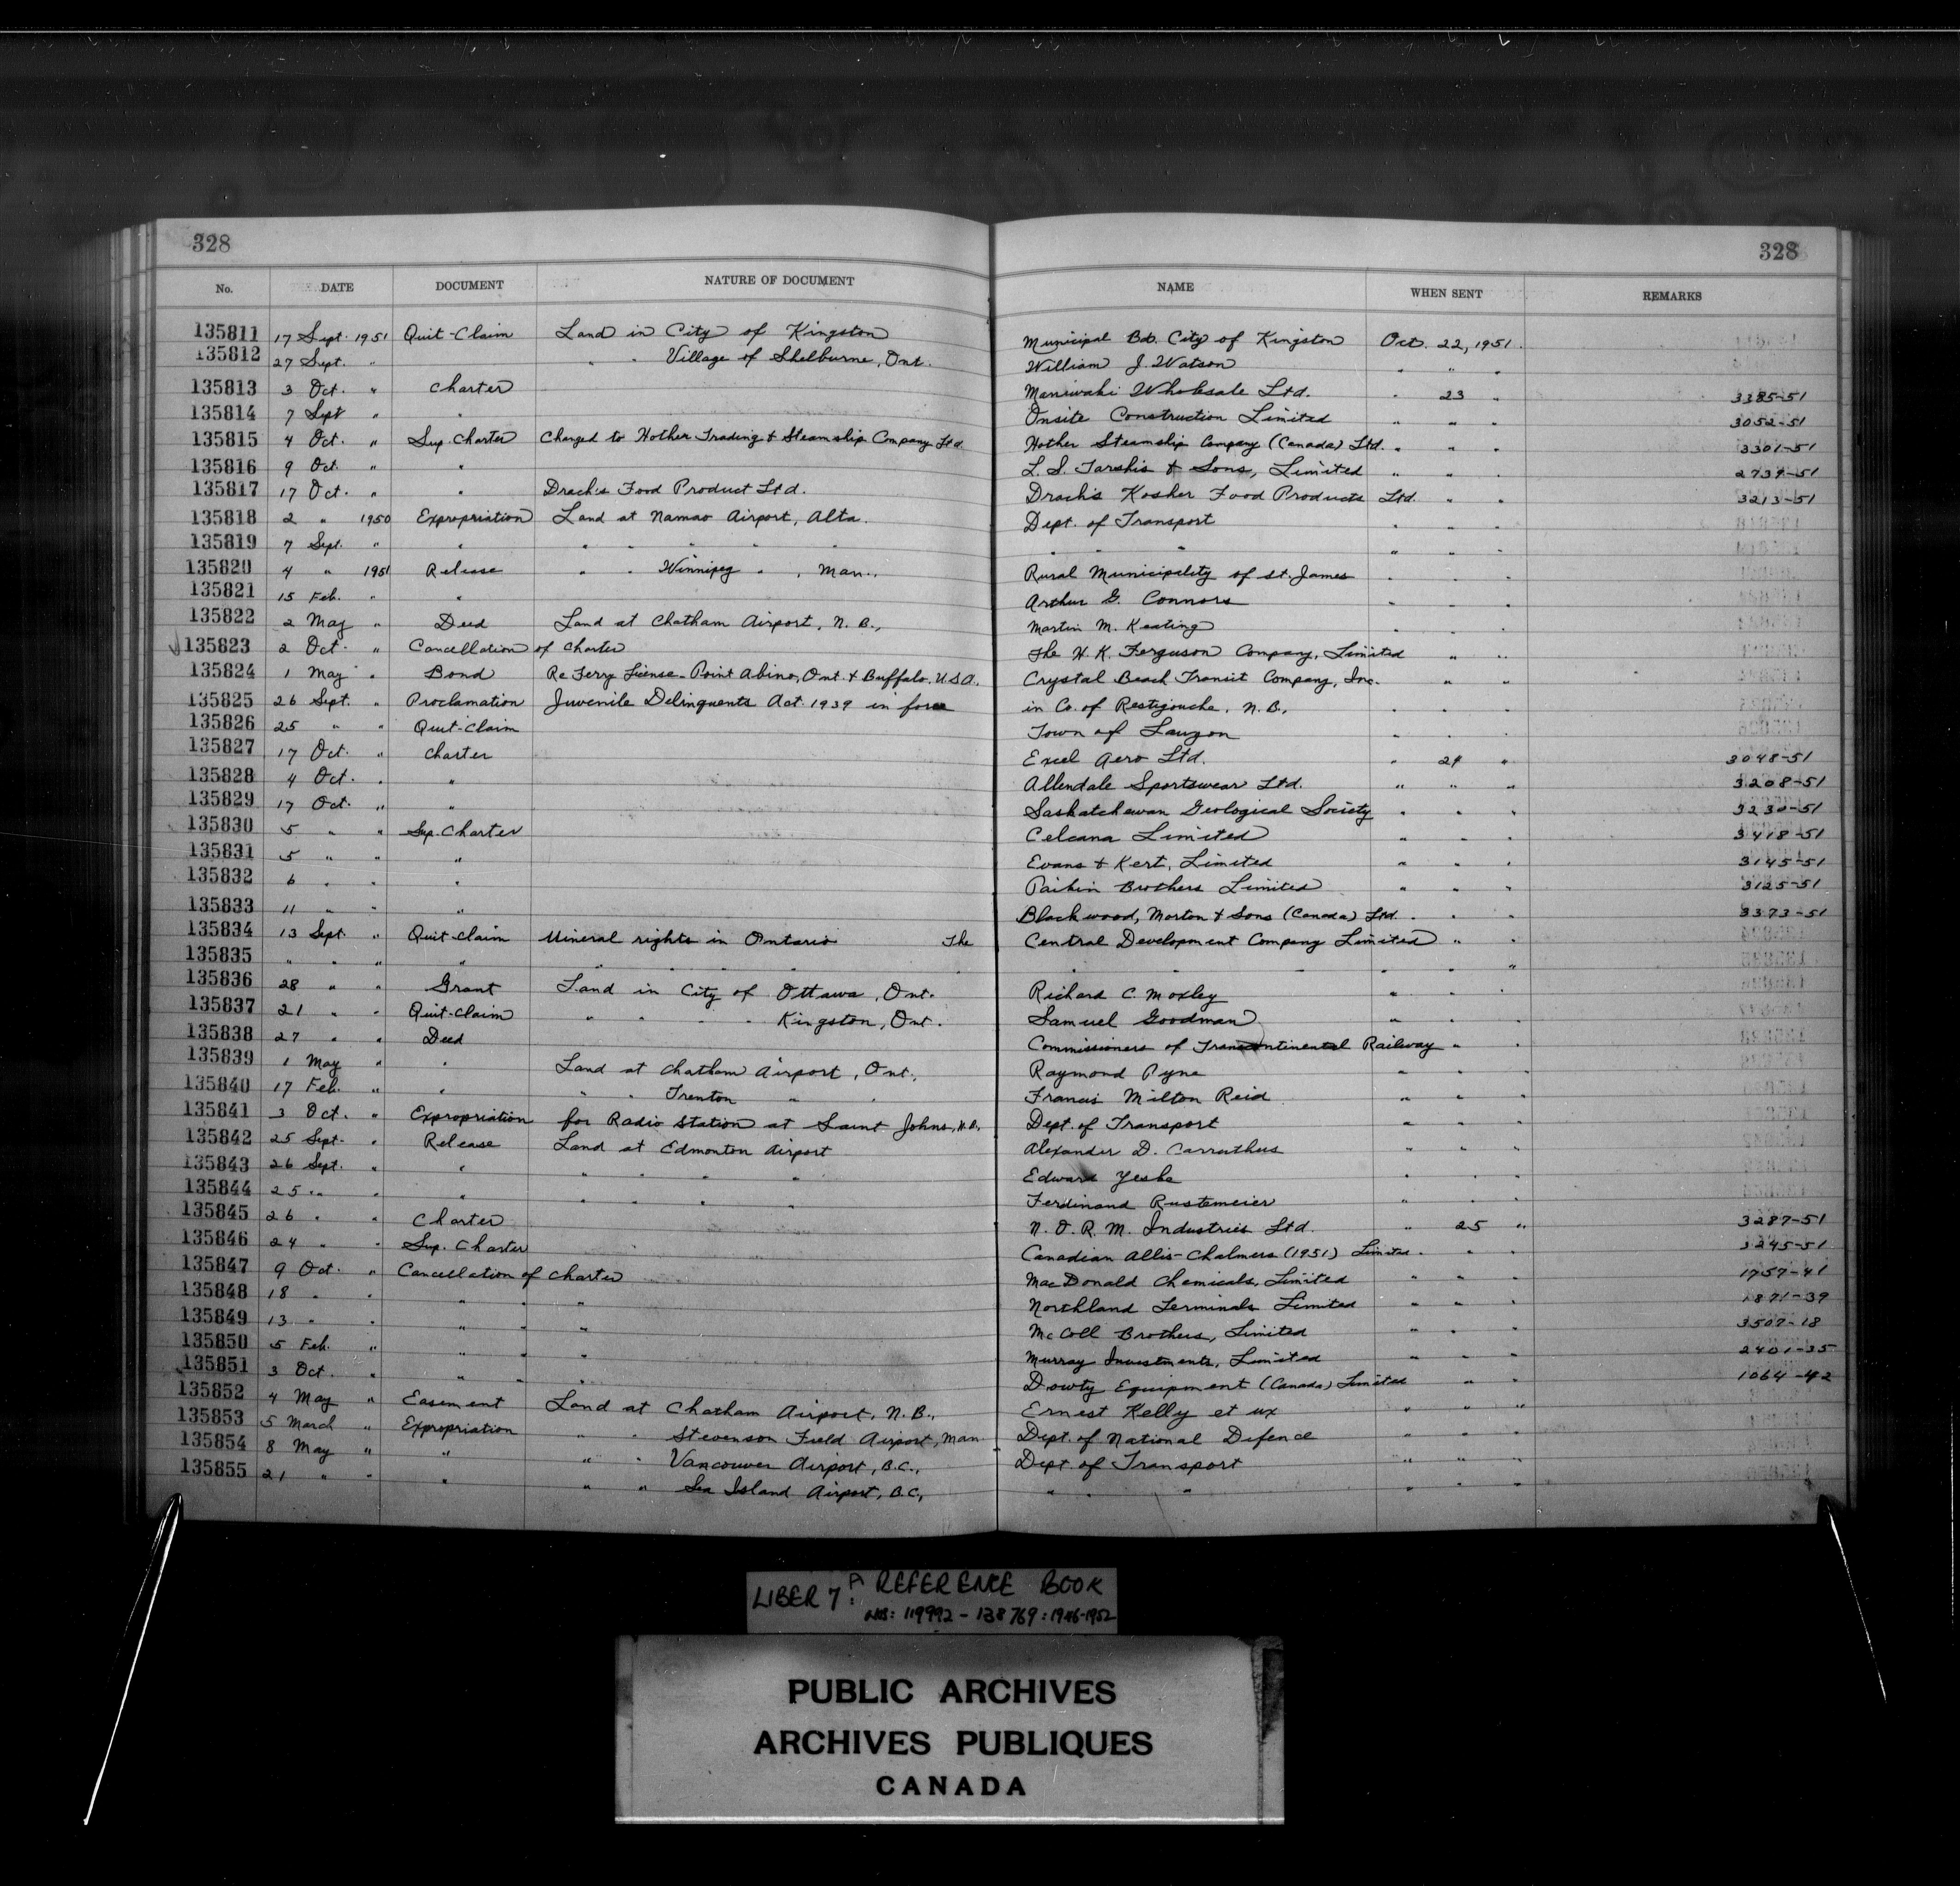 328 328
No. DATE DOCUMENT NATURE OF DOCUMENT NAME WHEN SENT REMARKS
135811 17 Sept. 1951 Quit-Claim Land in City of Kingston Municipal Bd. City of Kingston Oct. 22, 1951.
135812 27 Sept. " " " Village of Shelburne, Ont. William J. Watson " " "
135813 3 Oct. " Charter Maniwaki Wholesale Ltd. " 23 " 3385-51
135814 7 Sept " " Onsite Construction Limited " " " 3052-51
135815 4 Oct. " Sup. Charter Changed to Hother Trading & Steamship Company Ltd. Hother Steamship Company (Canada) Ltd. " " " 3301-51
135816 9 Oct. " " L. S. Tarshis & Sons, Limited " " " 2739-51
135817 17 Oct. " " Drach's Food Product Ltd. Drach's Kosher Food Products Ltd. " " 3213-51
135818 2 " 1950 Expropriation Land at Namao Airport, Alta. Dept. of Transport " " "
135819 7 Sept. " " " " " " " " " " " " "
135820 4 " 1951 Release " " Winnipeg " , Man., Rural Municipality of St. James " " "
135821 15 Feb. " " Arthur G. Connors " " "
135822 2 May " Deed Land at Chatham Airport, N.B., Martin M. Keating " " "
135823 2 Oct. " Cancellation of Charter The H. K. Ferguson Company, Limited " "
135824 1 May " Bond Re Ferry License - Point Abino, Ont. & Buffalo, U.S.A. Crystal Beach Transit Company, Inc. " "
135825 26 Sept. " Proclamation Juvenile Delinquents Act 1939 in force in Co. of Restigouche, N.B., " " "
135826 25 " " Quit-Claim Town of Lauzon " " "
135827 17 Oct. " Charter Excel Aero Ltd. " 24 " 3048-51
135828 4 Oct. " " Allendale Sportswear Ltd. " " " 3208-51
135829 17 Oct. " " Saskatchewan Geological Society " " " 3230-51
135830 5 " " Sup. Charter Celcana Limited " " " 3418-51
135831 5 " " " Evans & Kert, Limited " " " 3145-51
135832 6 " " " Paikin Brothers Limited " " " 3125-51
135833 11 " " " Blackwood, Morton & Sons (Canada) Ltd. " " " 3373-51
135834 13 Sept. " Quit-Claim Mineral rights in Ontario The Central Development Company Limited " "
135835 " " " " " " " " " " " " " "
135836 28 " " Grant Land in City of Ottawa, Ont. Richard C. Moxley " " "
135837 21 " " Quit-Claim " " " " Kingston, Ont. Samuel Goodman " " "
135838 27 " " Deed Commissioners of Transcontinental Railway " "
135839 1 May " " Land at Chatham Airport, Ont., Raymond Pyne " " "
135840 17 Feb. " " " " Trenton " " Francis Milton Reid " " "
135841 3 Oct. " Expropriation for Radio Station at Saint Johns, N.B., Dept. of Transport " " "
135842 25 Sept. " Release Land at Edmonton Airport Alexander D. Carruthers " " "
135843 26 Sept. " " " " " " Edward Yeske " " "
135844 25 " " " " " " " Ferdinand Rustemeier " " "
135845 26 " " Charter N. O. R. M. Industries Ltd. " 25 " 3287-51
135846 24 " " Sup. Charter Canadian Allis-Chalmers (1951) Limited " " " 3245-51
135847 9 Oct. " Cancellation of Charter MacDonald Chemicals, Limited " " " 1757-41
135848 18 " " " " " Northland Terminals Limited " " " 1871-39
135849 13 " " " " " McColl Brothers, Limited " " " 3507-18
135850 5 Feb. " " " " Murray Investments, Limited " " " 2401-35
135851 3 Oct. " " " " Dowty Equipment (Canada) Limited " " 1064-42
135852 4 May " Easement Land at Chatham Airport, N.B., Ernest Kelly et ux " " "
135853 5 March " Expropriation " " Stevenson Field Airport, Man. Dept. of National Defence " " "
135854 8 May " " " " Vancouver Airport, B.C., Dept. of Transport " " "
135855 21 " " " " " Sea Island Airport, B.C., " " " " " "
LIBER 7A: REFERENCE BOOK
NOS: 119992 - 138769: 1946-1952
PUBLIC ARCHIVES
ARCHIVES PUBLIQUES
CANADA